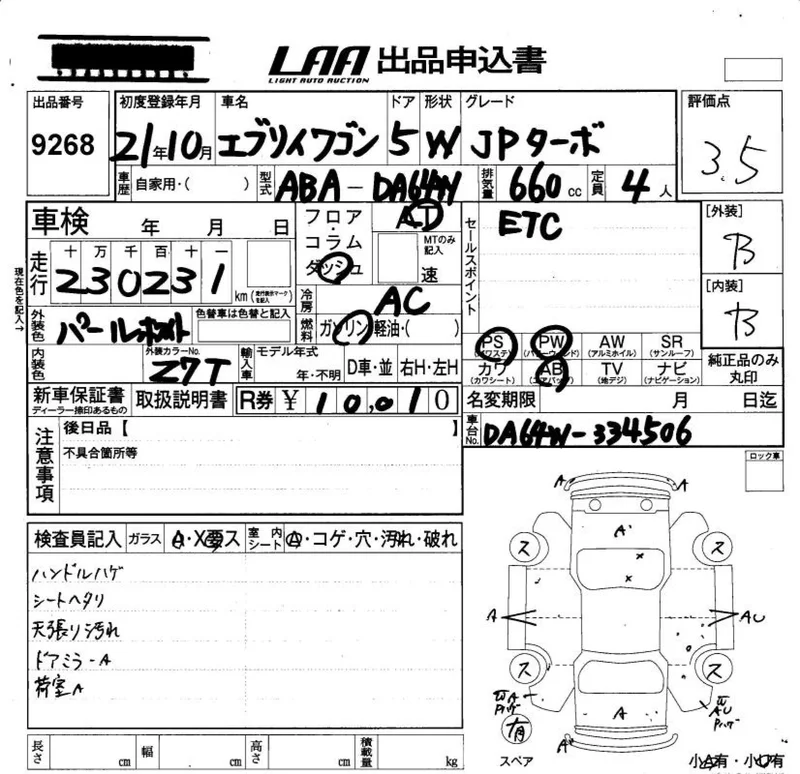 LAA 出品申込書
LIGHT AUTO AUCTION
出品番号 初度登録年月 車名 ドア 形状 グレード 評価点
9268 21年10月 エブリィワゴン 5 W JPターボ 3.5
車歴 自家用・( ) 型式 ABA-DA64W 排気量 660cc 定員 4人
車検 年 月 日 フロア・コラム ダッシュ AT MTのみ記入 速
セールスポイント ETC
[外装] B
走行 十 万 千 百 十 一
230231 km (走行表示マークを記入)
現在色を記入→
冷房 AC
[内装] B
外装色 パールホワイト 色替車は色替と記入 燃料 ガソリン 軽油・( )
PS (パワステ) PW (パワーウィンド) AW (アルミホイル) SR (サンルーフ)
カワ (カワシート) AB (エアバック) TV (地デジ) ナビ (ナビゲーション)
純正品のみ丸印
内装色 外装カラーNo. Z7T 輸入車 モデル年式 年・不明 D車・並 右H・左H
新車保証書 ディーラー捺印あるもの 取扱説明書 R券 ¥ 10,010
名変期限 月 日迄
車台No. DA64W-334506
注意事項 後日品【 】
不具合箇所等
ロック車
検査員記入 ガラス A・X要ス 室内シート A・コゲ・穴・汚れ・破れ
ハンドルハゲ
シートヘタリ
天張り汚れ
ドアミラーA
荷室A
A A
A'
ス ス
x
x
A AU
ス ス
A
A
有
スペア
AU
小A有・小U有
長さ cm 幅 cm 高さ cm 積載量 kg